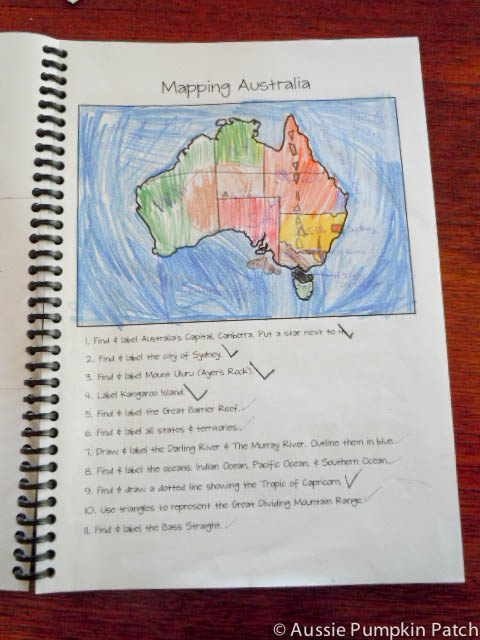 Mapping Australia
Sydney
1. Find & label Australia's Capital, Canberra. Put a star next to it.
2. Find & label the city of Sydney.
3. Find & label Mount Uluru (Ayer's Rock).
4. Label Kangaroo Island.
5. Find & label the Great Barrier Reef.
6. Find & label all states & territories.
7. Draw & label the Darling River & The Murray River. Outline them in blue.
8. Find & label the oceans: Indian Ocean, Pacific Ocean, & Southern Ocean.
9. Find & draw a dotted line showing the Tropic of Capricorn.
10. Use triangles to represent the Great Dividing Mountain Range.
11. Find & label the Bass Straight.
© Aussie Pumpkin Patch